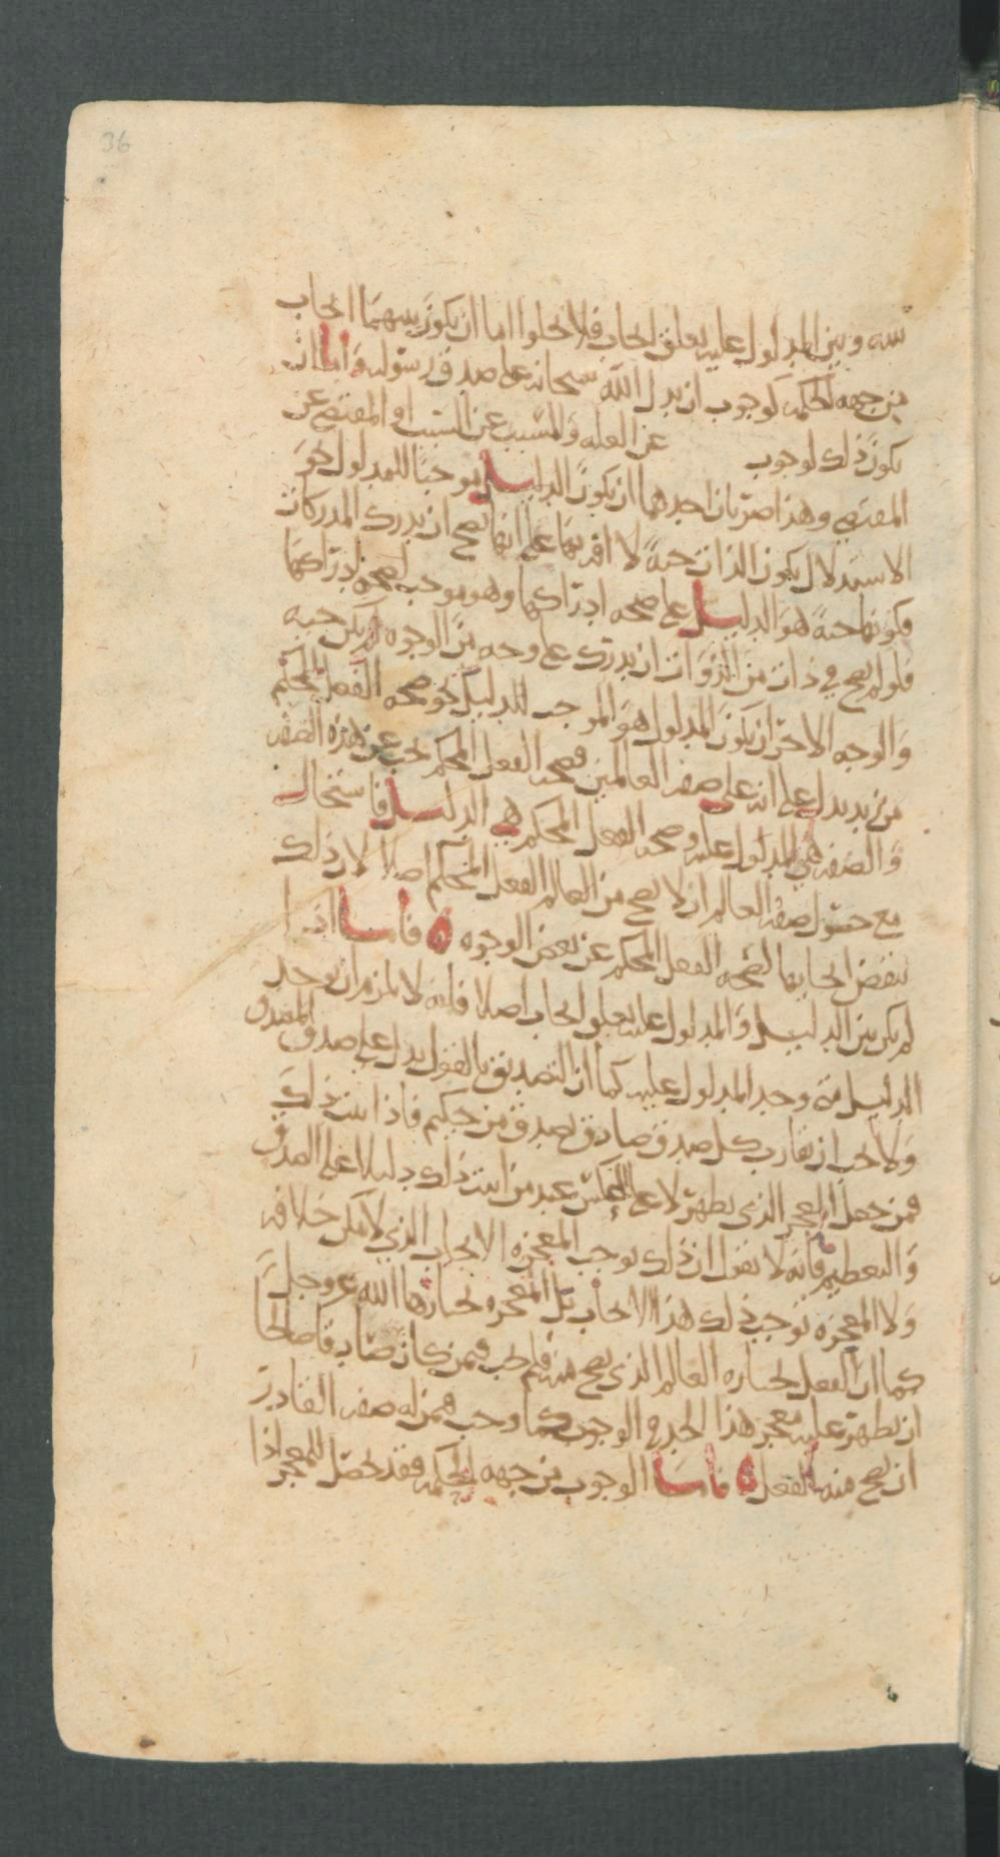 36
بينه وبين المدلول عليه تعلق ايجاب فلا يخلوا اما ان يكون بينهما ايجاب
من جهه الحكمه كوجوب ان يدل الله سبحانه على صدق رسوله واما ان
يكون ذلك لوجوب عن العله والمسبب عن السبب او المقتضى عن
المقتضي وهذا ضربان احدهما ان يكون الدليل موجبا للمدلول نحو
الاستدلال بكون الذات حية لا افه بها على انها يصح ان يدرك المدركات
فكونها حية هو الدليل على صحه ادراكها وهو موجب لصحة ادراكها
فلو لم يصح في ذات من الذوات ان تدرك على وجه من الوجوه لم تكن حيه
والوجه الاخر ان يكون المدلول هو الموجب للدليل نحو صحه الفعل المحكم
من زيد يدل على انه على صفه العالمين فصحه الفعل المحكم تجب عن هذه الصفه
والصفه هي المدلول عليه وصحه الفعل المحكم هي الدليل فاستحال
مع حصول صفه العالم ان لا يصح من العالم الفعل المحكم اصلا لان ذلك
ينقض ايجابها لصحه الفعل المحكم عن بعض الوجوه ه فاما اذا
لم يكن بين الدليل والمدلول عليه تعلق ايجاب اصلا فانه لا يلزم ان يوجد
الدليل متى وجد المدلول عليه كما ان التصديق بالقول يدل على صدق المصدق
ولا يجب ان يقارب كل صدق صادق تصديق من حكيم فاذا ثبت ذلك
فمن جعل المعجز الذي يظهر لا على العكس عند من اثبت ذلك دليلا على الصدق
والتعظيم فانه لا يقول ان ذلك يوجب المعجزه الايجاب الذي لا يمكن خلافه
ولا المعجزه توجب ذلك هذا الايجاب بل المعجزه يختارها الله عز وجل
كما ان الفعل يختاره العالم الذي يصح منه فلم يجب فيمن كان صادقا صالحا
ان يظهر عليه معجز هذا الحد في الوجوب كما وجب فيمن له صفه القادر
ان يصح منه الفعل ه فاما الوجوب من جهه الحكمه فقد يحصل للمعجز اذا